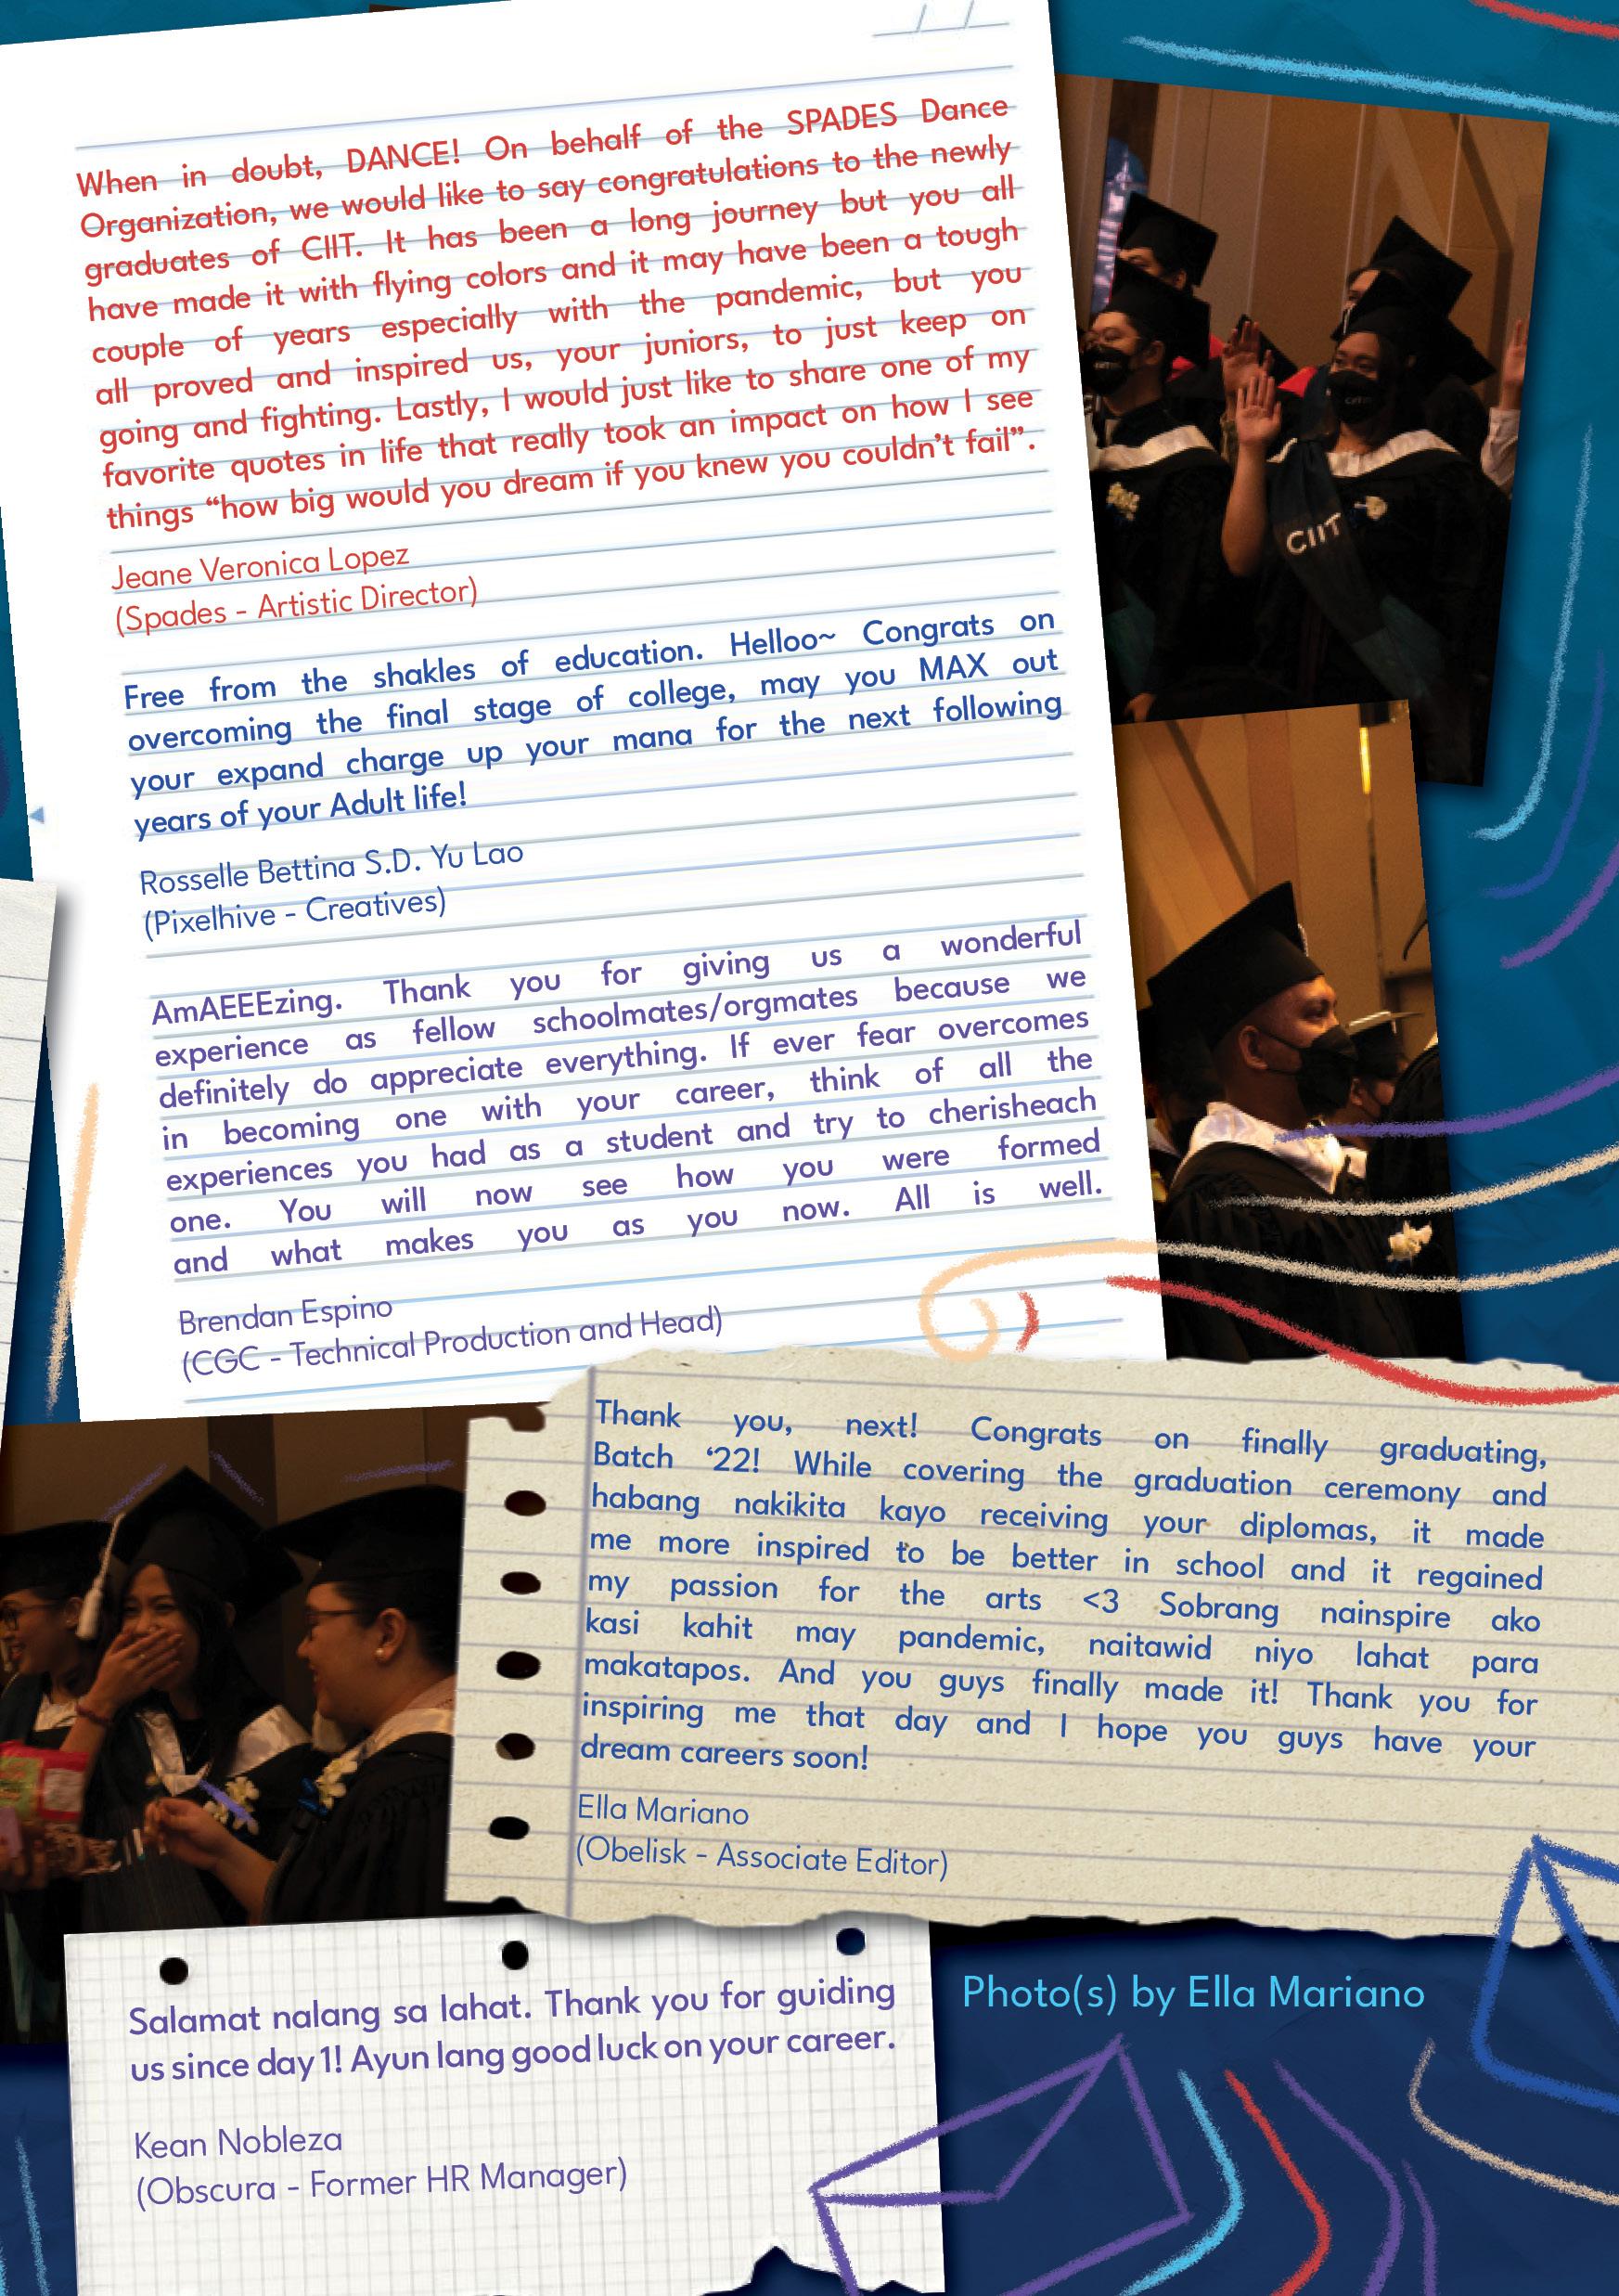 When in doubt, DANCE! On behalf of the SPADES Dance
Organization, we would like to say congratulations to the newly
graduates of CIIT. It has been a long journey but you all
have made it with flying colors and it may have been a tough
couple of years especially with the pandemic, but you
all proved and inspired us, your juniors, to just keep on
going and fighting. Lastly, I would just like to share one of my
favorite quotes in life that really took an impact on how I see
things “how big would you dream if you knew you couldn’t fail”.
Jeane Veronica Lopez
(Spades - Artistic Director)
Free from the shakles of education. Helloo~ Congrats on
overcoming the final stage of college, may you MAX out
your expand charge up your mana for the next following
years of your Adult life!
Rosselle Bettina S.D. Yu Lao
(Pixelhive - Creatives)
AmAEEEzing. Thank you for giving us a wonderful
experience as fellow schoolmates/orgmates because we
definitely do appreciate everything. If ever fear overcomes
in becoming one with your career, think of all the
experiences you had as a student and try to cherisheach
one. You will now see how you were formed
and what makes you as you now. All is well.
Brendan Espino
(CGC - Technical Production and Head)
CIIT
Thank you, next! Congrats on finally graduating,
Batch ‘22! While covering the graduation ceremony and
habang nakikita kayo receiving your diplomas, it made
me more inspired to be better in school and it regained
my passion for the arts <3 Sobrang nainspire ako
kasi kahit may pandemic, naitawid niyo lahat para
makatapos. And you guys finally made it! Thank you for
inspiring me that day and I hope you guys have your
dream careers soon!
Ella Mariano
(Obelisk - Associate Editor)
Salamat nalang sa lahat. Thank you for guiding
us since day 1! Ayun lang good luck on your career.
Kean Nobleza
(Obscura - Former HR Manager)
Photo(s) by Ella Mariano